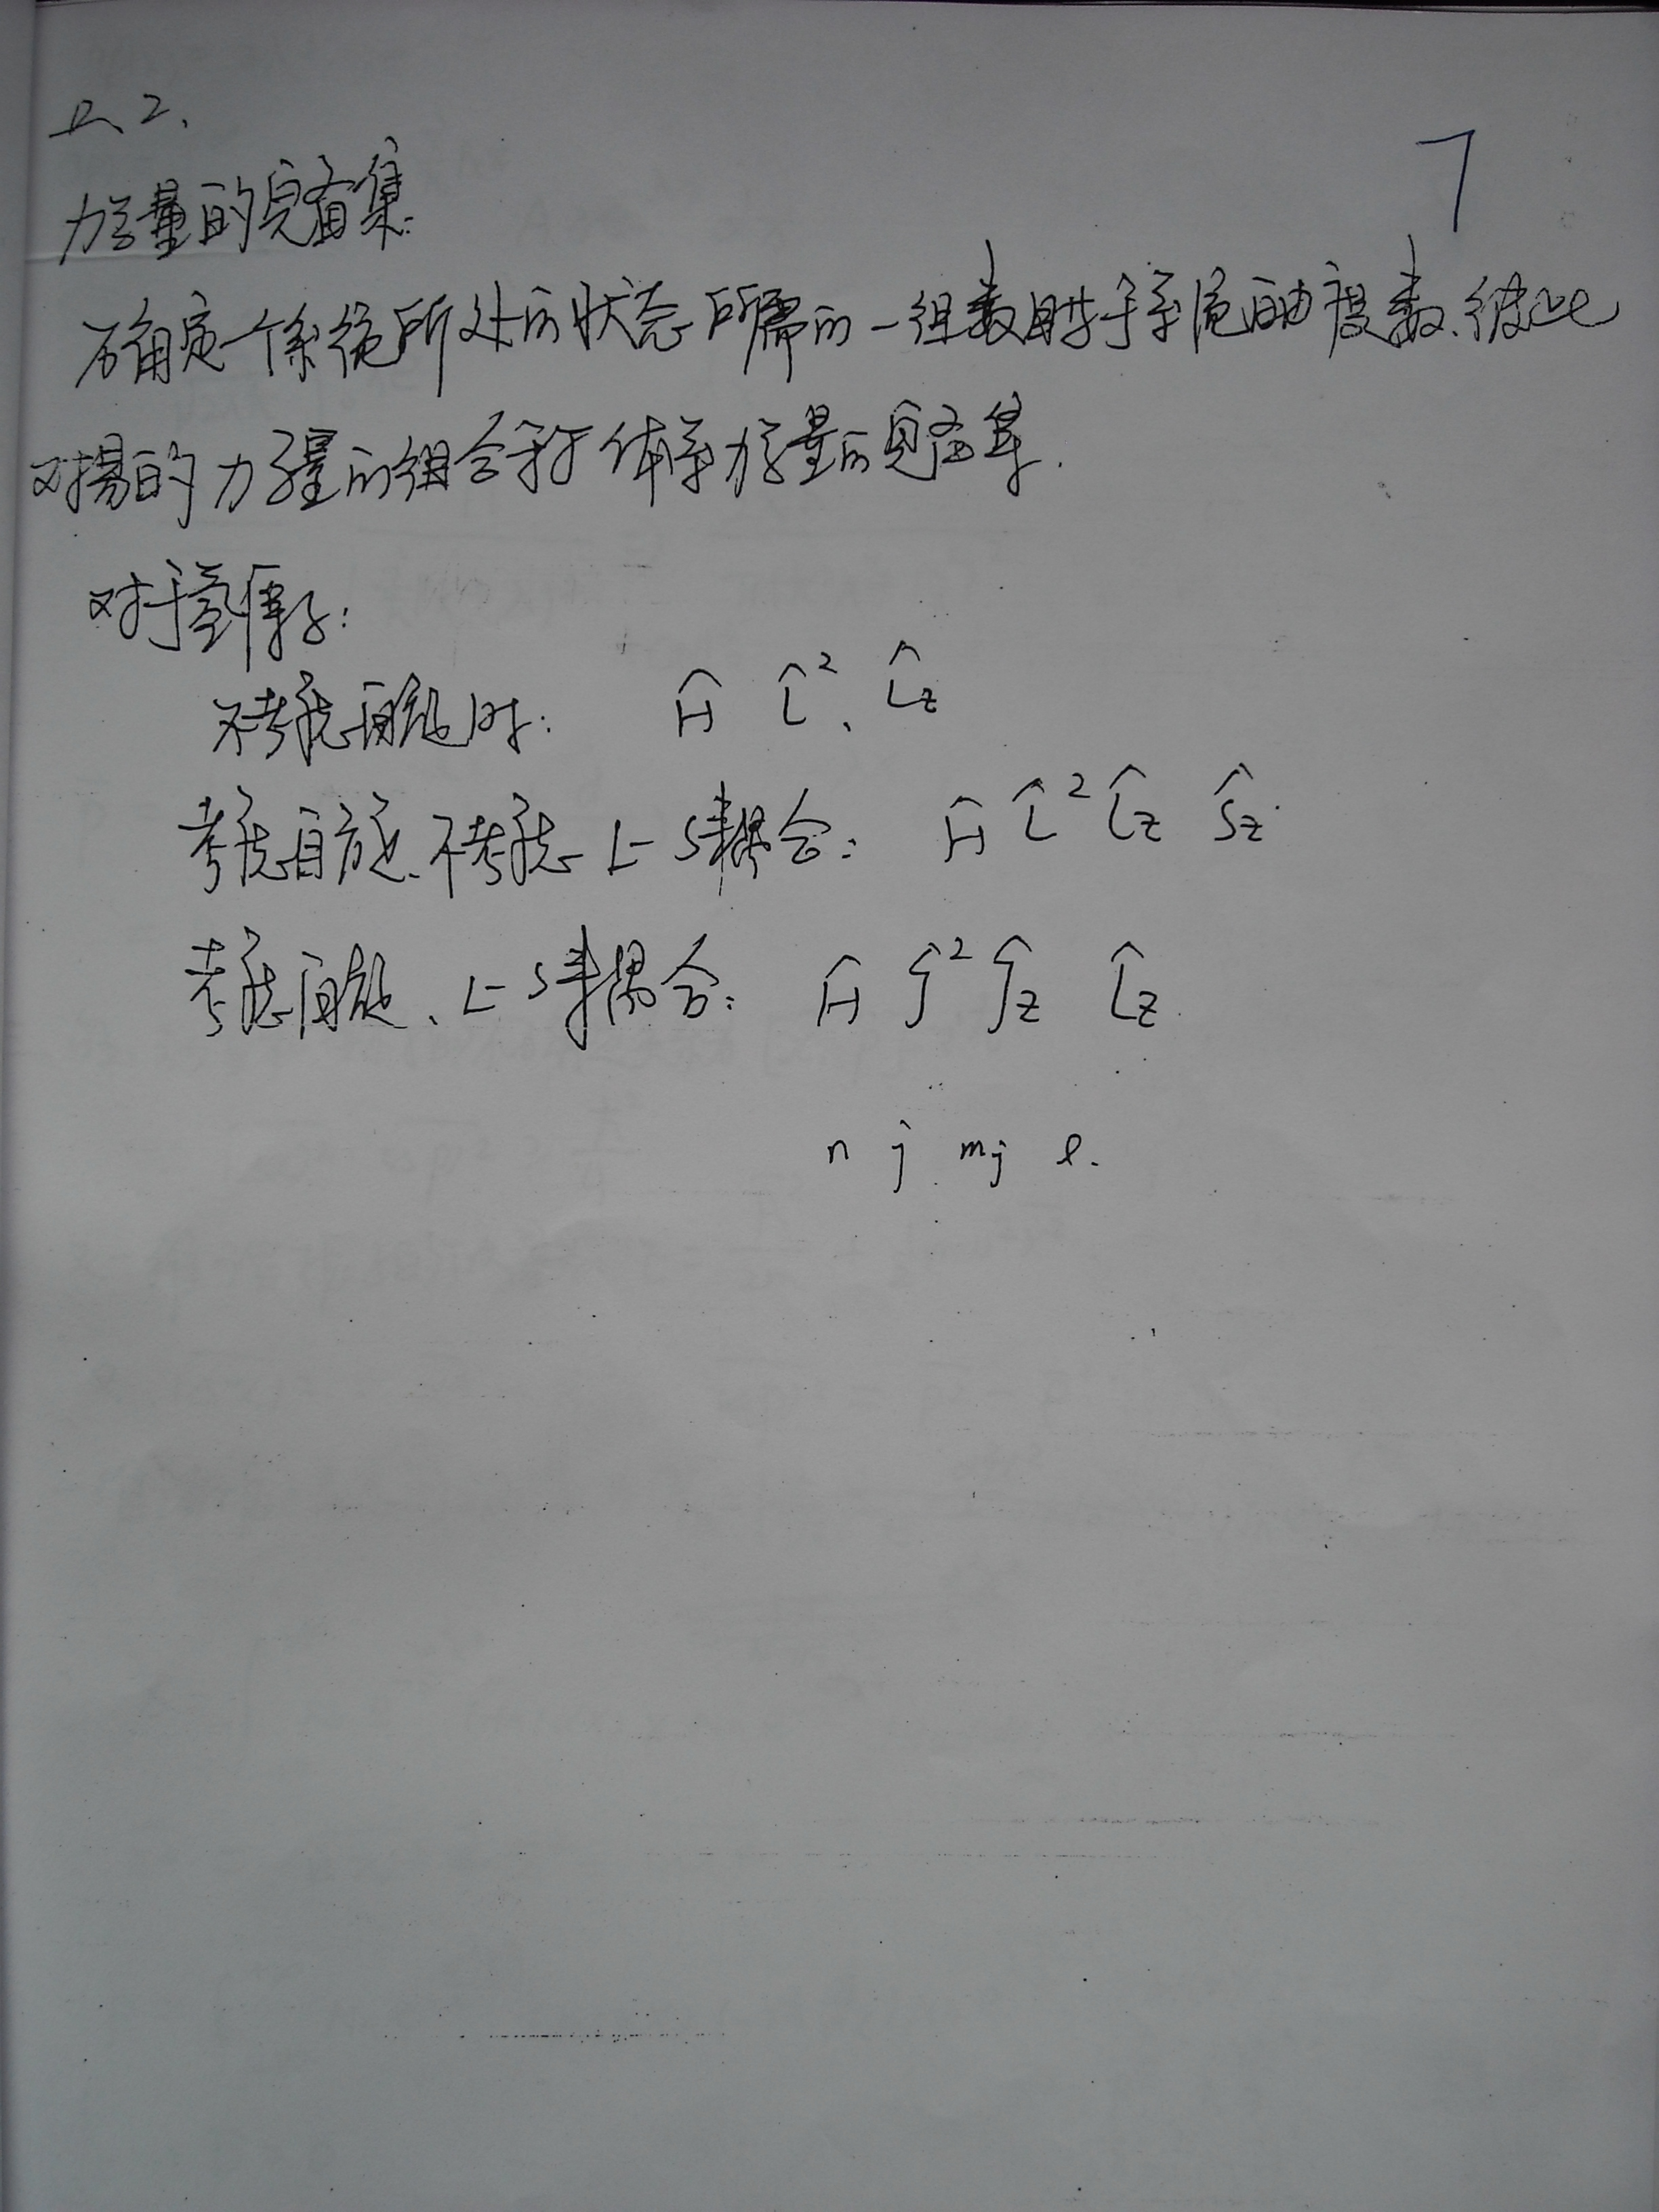 五、2、
7
力学量的完备集:
确定一个系统所处的状态所需的一组数目等于系统自由度数、彼此
对易的力学量的组合称为体系力学量的完备集.
对于氢原子:
不考虑自旋时: Ĥ L̂², L̂z
考虑自旋、不考虑 L-S耦合: Ĥ L̂² L̂z Ŝz.
考虑自旋、L-S耦合: Ĥ Ĵ² Ĵz L̂z.
n j mj l.